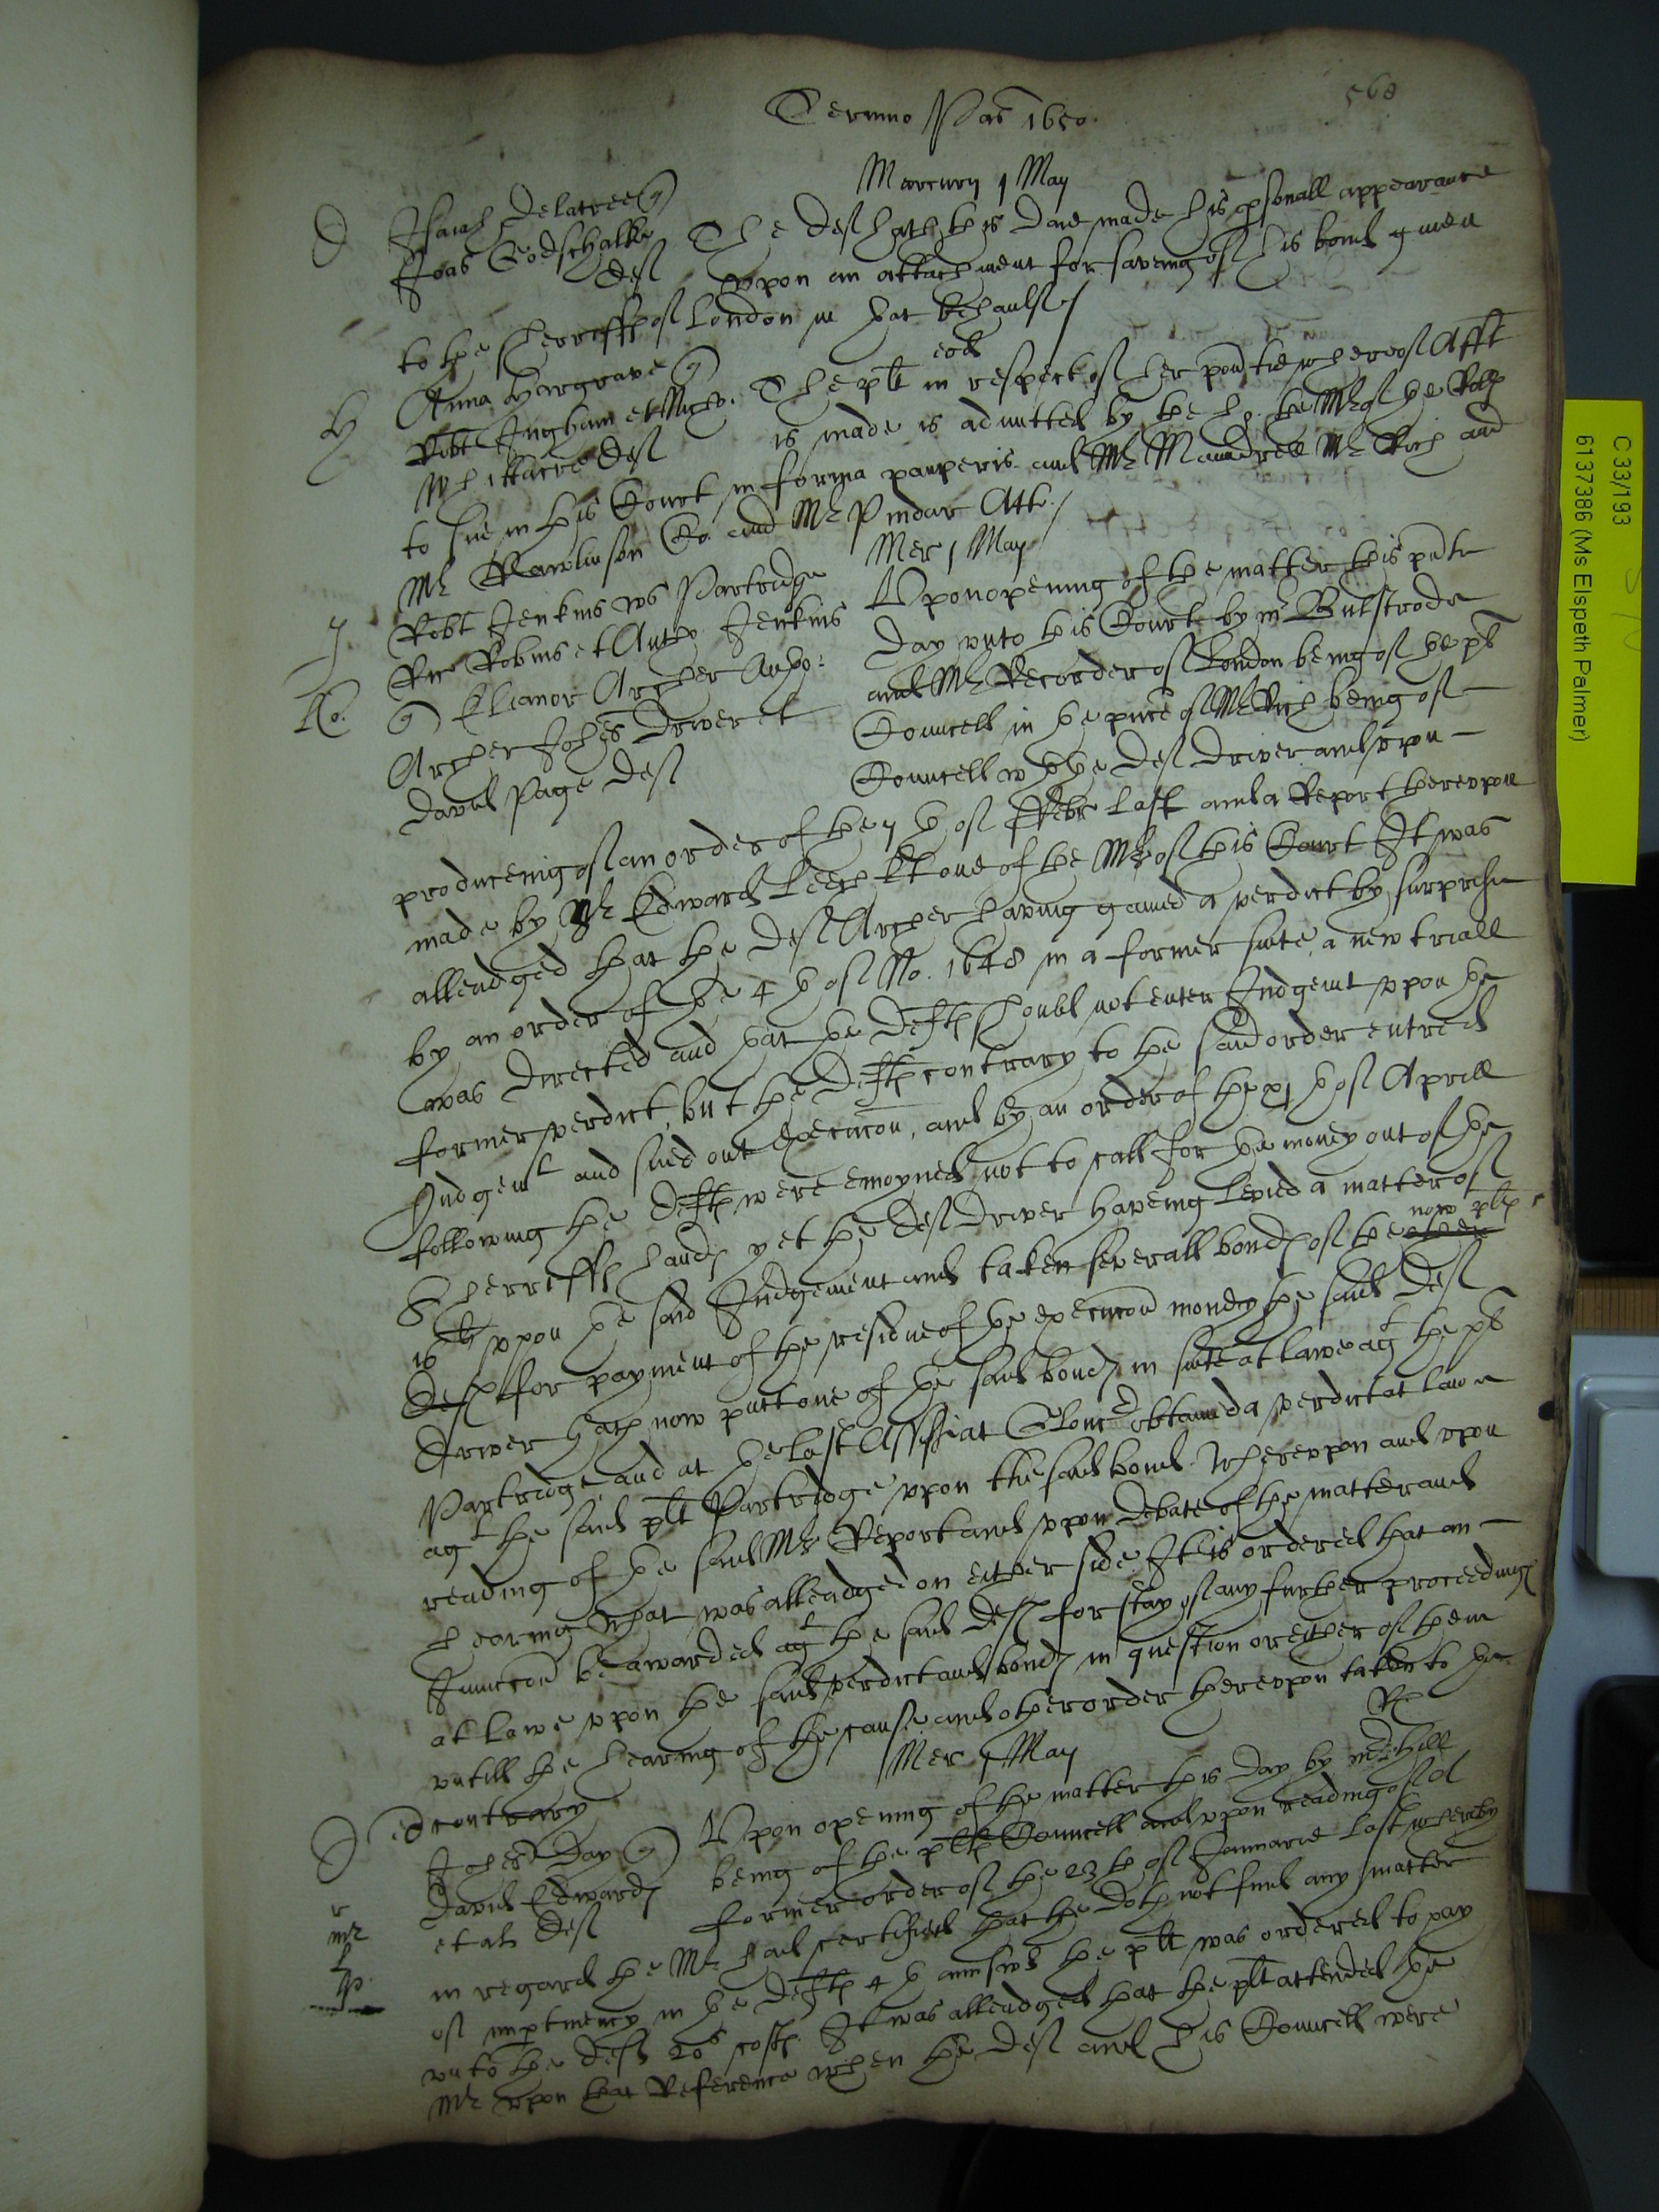 568
Termino Pas 1650.
Mercurij 1 May
D Isaack Delatree q
Joas Godschalke Def The Def hath this daie made his psonall appearance
upon an attachment for saveing of his bond given
to the Sherriffs of London in that behaulf
eod
H Anna Hargrave q
Robt Ingham et Margr. The plt in respect of her povtie whereof Afft
Whittacre Def is made is admitted by the Ho. the Mr of the Rolls
to sue in this Court in forma pauperis and Mr Maundrell Mr Rich and
Mr Rawlinson Co. and Mr Pindar Att.
Mer 1 May
J Robt Jenkins Partridge Upon opening of the matter this pnte
Ric Robins et Anth Jenkins day unto this Court by mr Bulstrode
Ro. q Eleanor Archer Antho: and Mr Recorder of London being of the plts
Archer Johes Driver et Councell in the pnce of Mr Rich being of
David Page Def Councell wth the Def Driver and upon
produceing of an order of the 7th of Febr last and a Report thereupon
made by Mr Edward Leech kt one of the Mrs of this Court It was
alleadged that the Def Archer having gained a verdict by surprise
by an order of the 4th of No. 1648 in a former suite a new triall
was directed and that the Defts should not enter Judgemt upon the
former verdict, but the Defts contrary to the said order entred
Judgemt and sued out Execucon, and by an order of the xjth of Aprill
following the Defts were enioyned not to call for the money out of the
Sherriffs hands yet the Def Driver haveing levied a matter of
now plts
16li upon the said Judgement and taken severall bonds of the other
Defts for payment of the residue of the execucon money the said Def
Driver hath now putt one of the said bonds in suite at lawe agt the plt
Partridge and at the last Assises at Glouc obtained a verdict at lawe
agt the said plt Partridge upon the said bond. Whereupon and upon
reading of the said Mrs Report and upon debate of the matter and
hearing what was alleadged on either side It is ordered that an
Iniunccon be awarded agt the said Defs for stay of any further proceedings
at lawe upon the said verdict and bonds in question or either of them
untill the hearing of the cause and other order thereupon taken to the
contrary Rp
Mer 1 May
D Johes Day q Upon opening of the matter this day by mr Hill
David Edwards being of the plts Councell and upon reading of a
et al Def former order of the 23th of Januarie last whereby
in regard the Mr had certified that he doth not find any matter
of imptinency in the Defts 4th answer the plt was ordered to pay
unto the Defts 20s costs It was alleadged that the plt attended the
Mr upon that Reference when the Def and his Councell were
C 33/193
6137386 (Ms Elspeth Palmer)